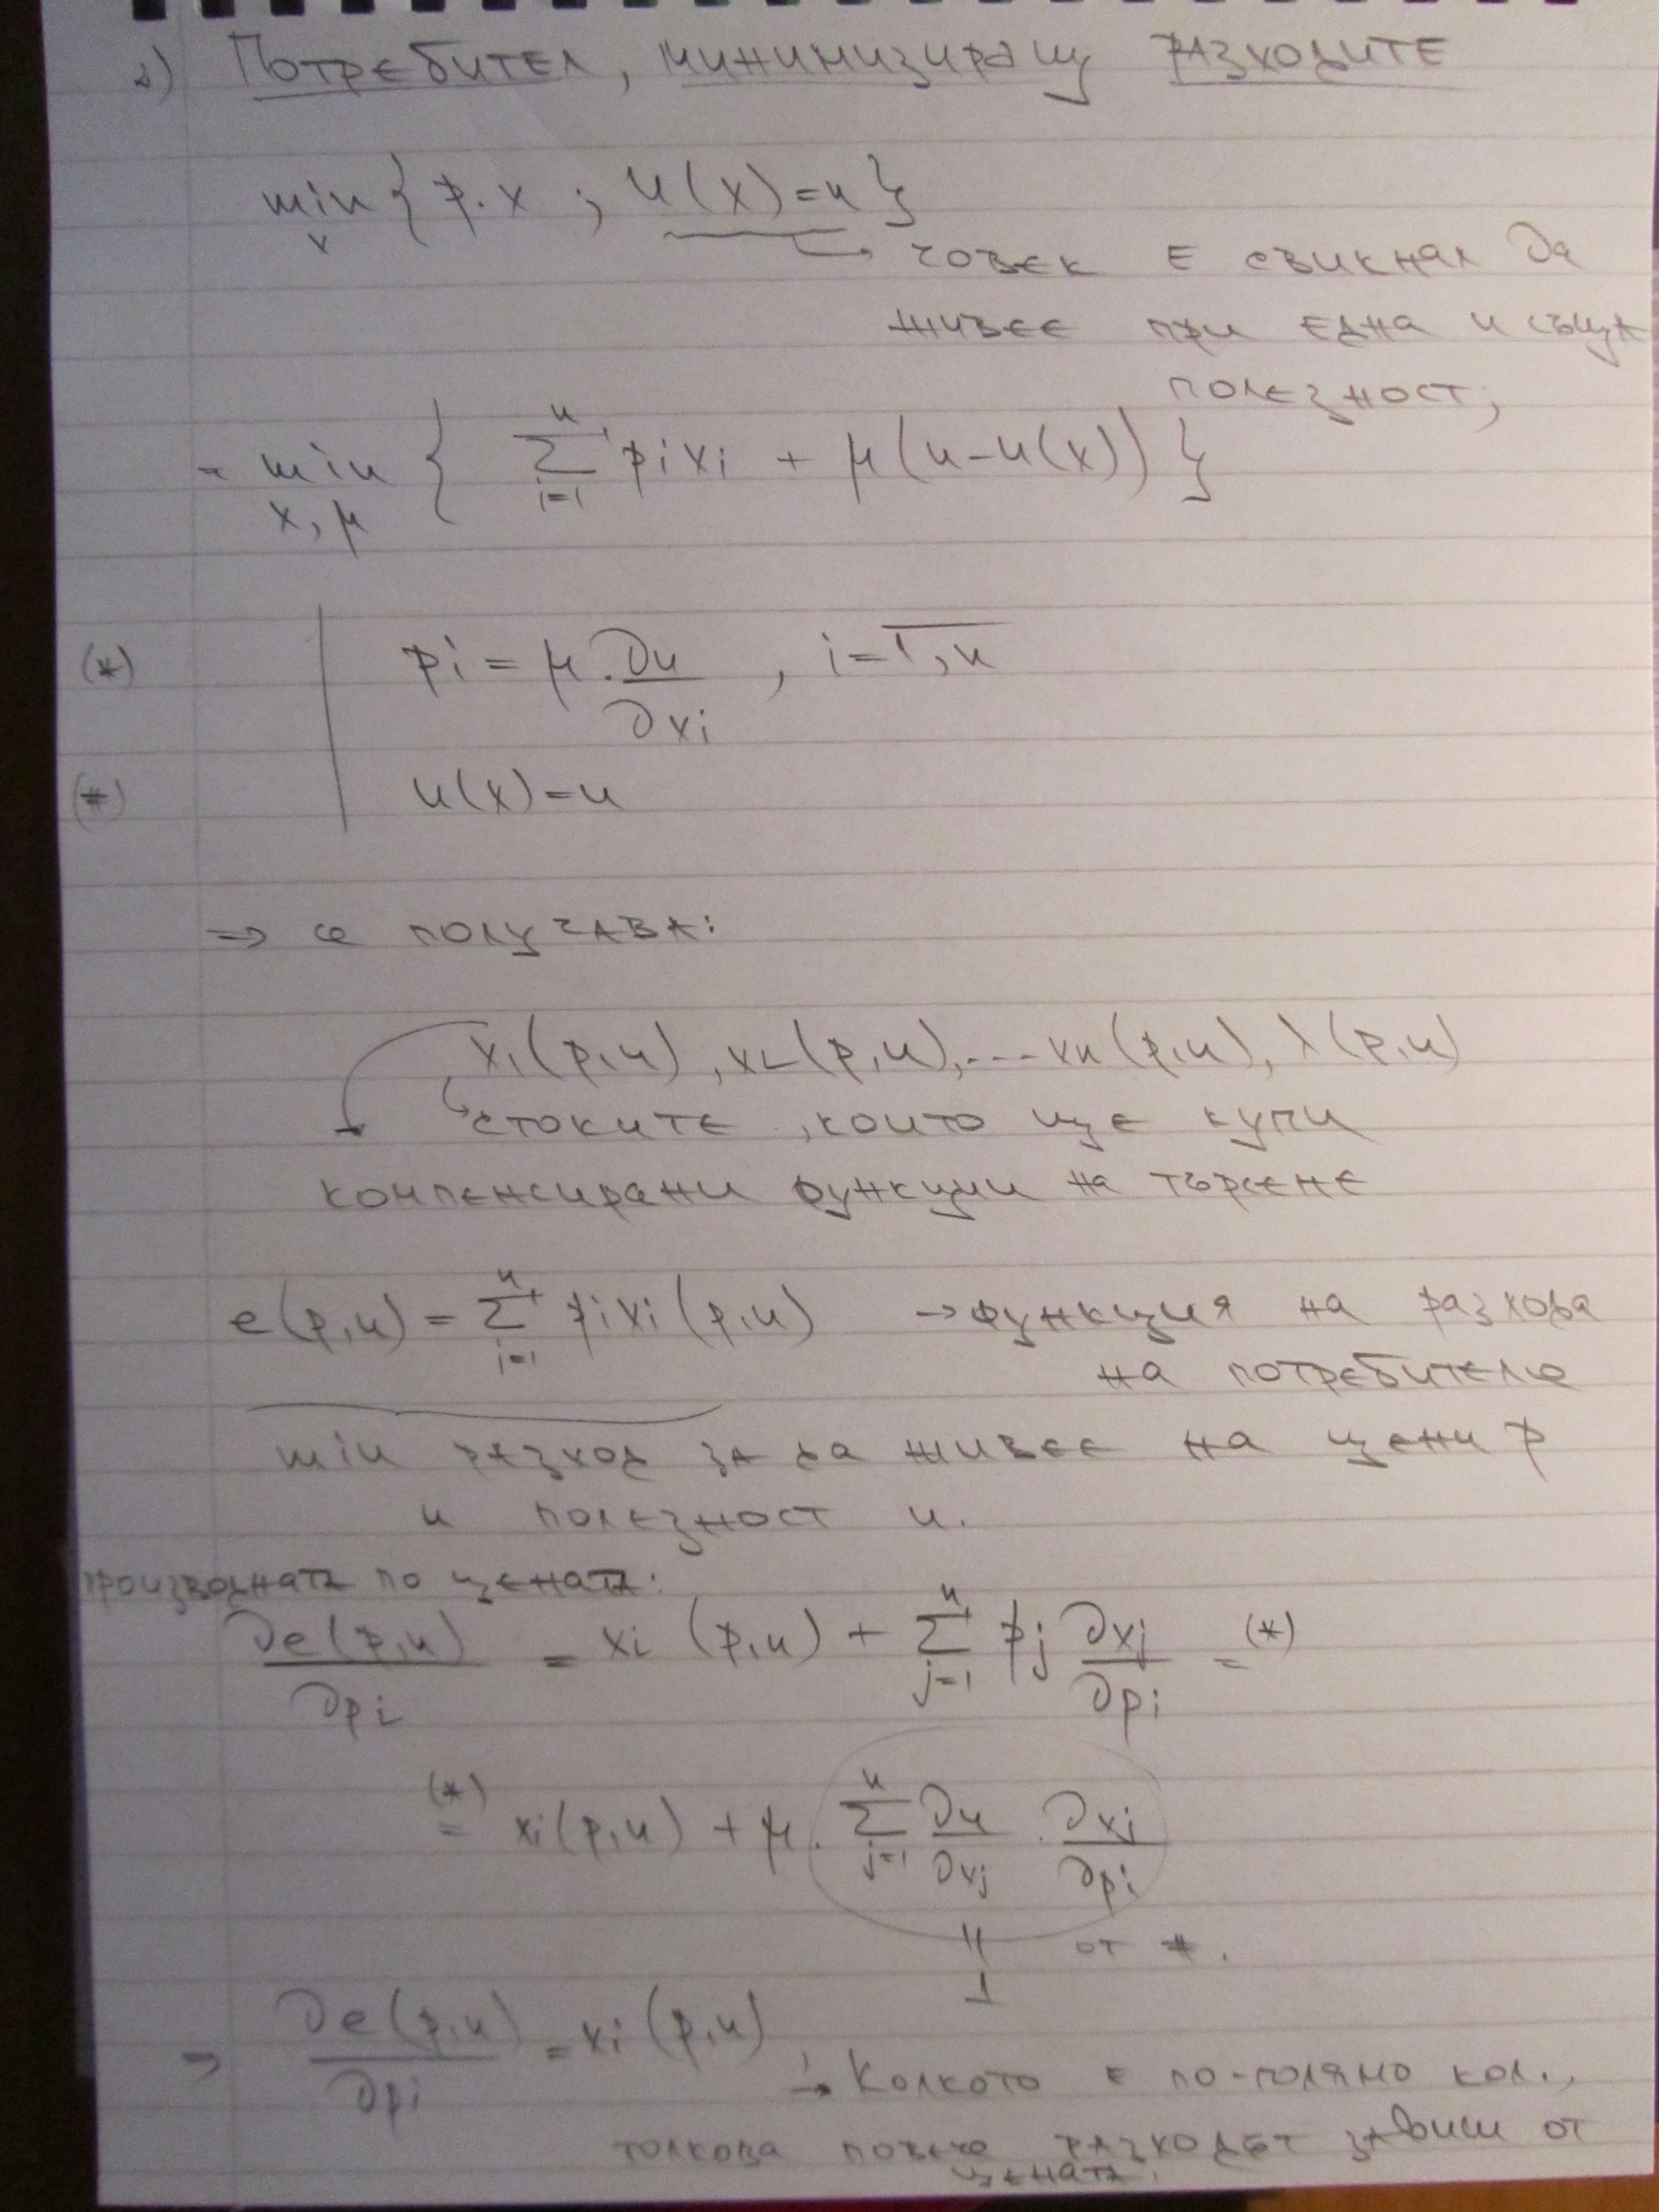 2) Потребител, минимизиращ разходите
min { p.x ; u(x)=u }
x
→ човек е свикнал да
живее при една и съща
полезност;
= min { Σ pixi + μ(u-u(x)) }
x, μ i=1 n
(*) pi = μ.∂u/∂xi , i=1,n
(#) u(x)=u
⇒ се получава:
x1(p,u), x2(p,u),...xn(p,u), λ(p,u)
стоките, които ще купи
компенсирани функции на търсене
e(p,u) = Σ pixi(p,u) → функция на разхода
на потребителя
min разход за да живее на цени p
и полезност u.
производната по цената:
∂e(p,u)/∂pi = xi (p,u) + Σ pj ∂xj/∂pi = (*)
(*) = xi(p,u) + μ. Σ ∂u/∂xj . ∂xj/∂pi
|| от #.
1
⇒ ∂e(p,u)/∂pi = xi(p,u)
→ Колкото е по-голямо кол.,
толкова повече разходът зависи от
цената.